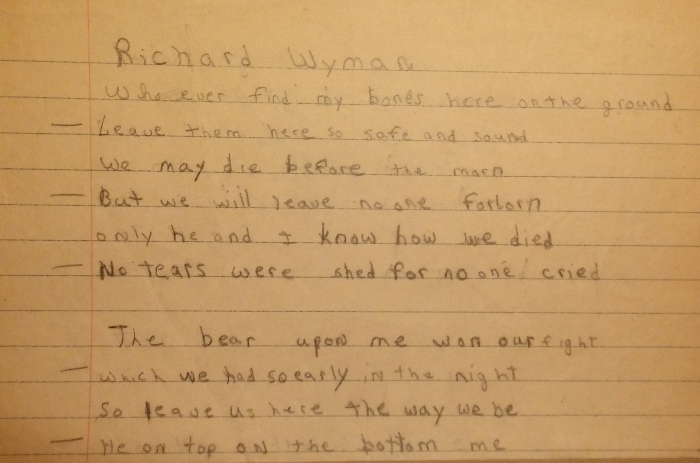 Richard Wyman
Who ever find my bones here on the ground
— Leave them here so safe and sound
We may die before the morn
— But we will leave no one forlorn
only he and I know how we died
— No tears were shed for no one cried
The bear upon me won our fight
— which we had so early in the night
So leave us here the way we be
— He on top on the bottom me